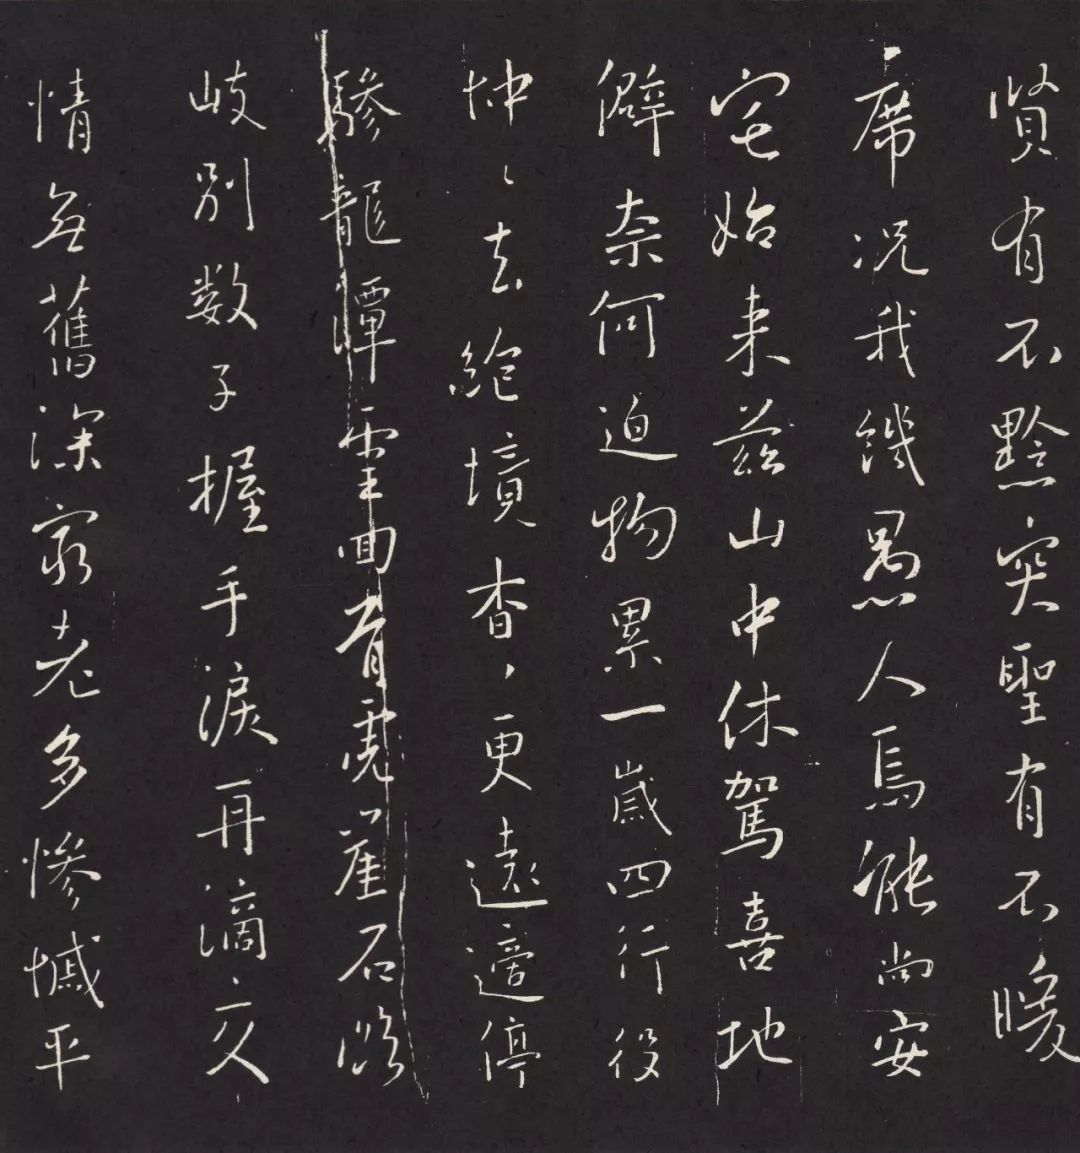 賢有不黔突聖有不暖
席况我饑愚人焉能尚安
宅始来茲山中休駕喜地
僻奈何迫物累一歲四行役
忡〻去絶境杳〻更遠適停
驂龍潭雲回首虎崖石臨
岐別数子握手淚再滴交
情無舊深窮老多慘慽平